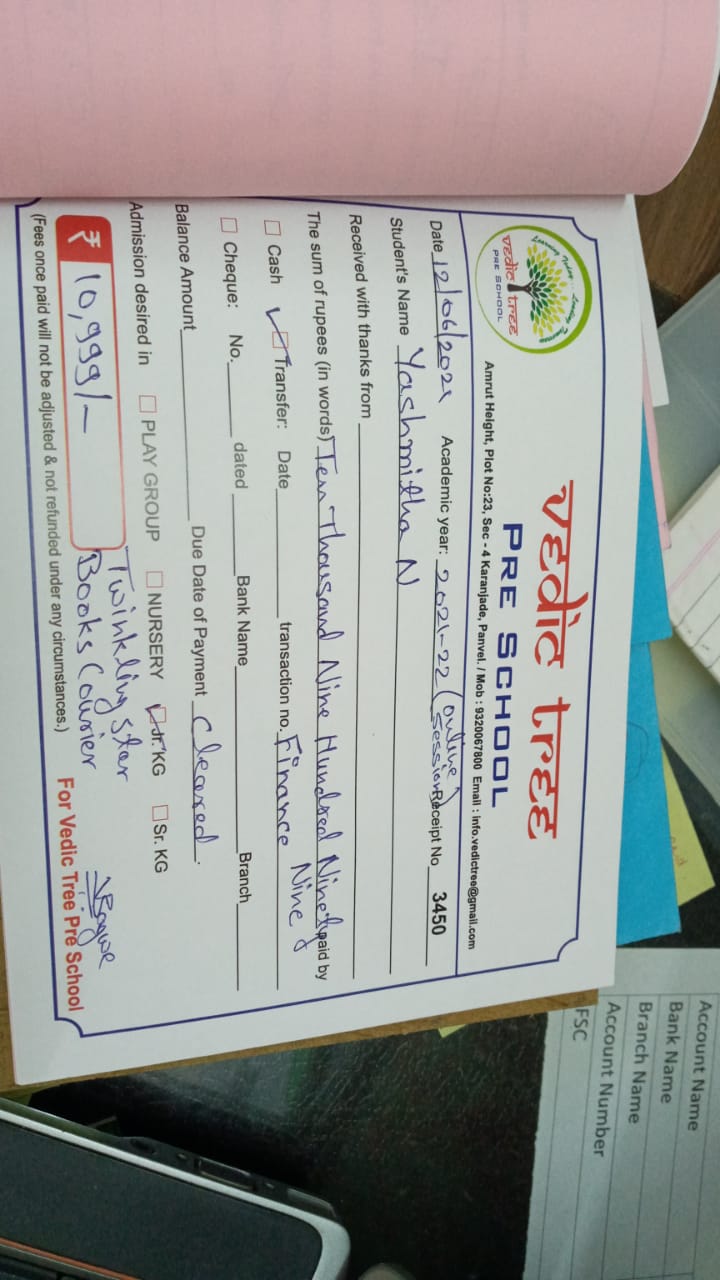 vedic tree
PRE SCHOOL
vedic tree
PRE SCHOOL
Amrut Height, Plot No:23, Sec - 4 Karanjade, Panvel. / Mob : 9320067800 Email : info.vedictree@gmail.com
Date 12/06/2021 Academic year: 2021-22 (online session) Receipt No 3450
Student's Name Yashmitha N
Received with thanks from
The sum of rupees (in words) Ten Thousand Nine Hundred Ninety Nine paid by
Cash Transfer: Date transaction no. Finance
Cheque: No. dated Bank Name Branch
Balance Amount Due Date of Payment Cleared.
Admission desired in PLAY GROUP NURSERY Jr. KG Sr. KG
₹ 10,999/-
Twinkling star
Books Courier
For Vedic Tree Pre School
(Fees once paid will not be adjusted & not refunded under any circumstances.)
Account Name
Bank Name
Branch Name
Account Number
FSC